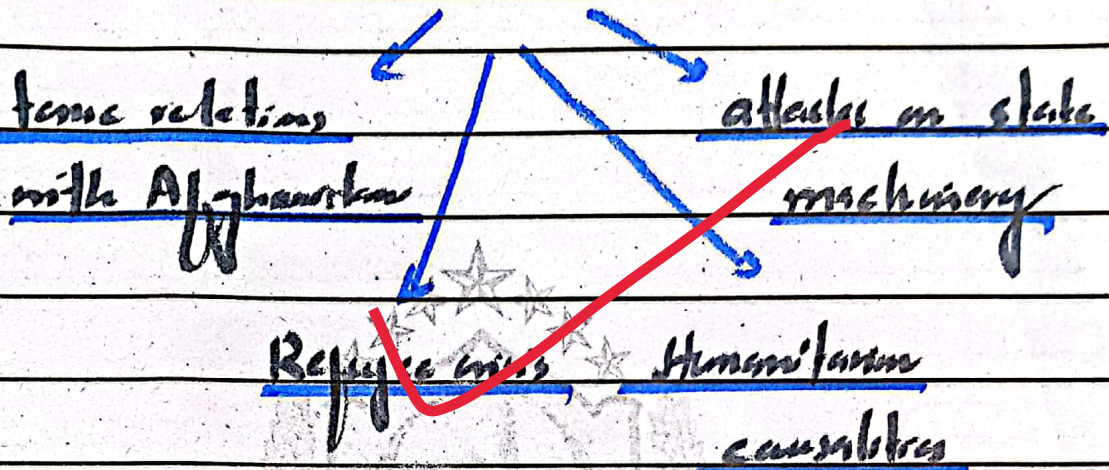 tense relations
with Afghanistan
attacks on state
machinery
Refugee crisis
Humanitarian
causalities